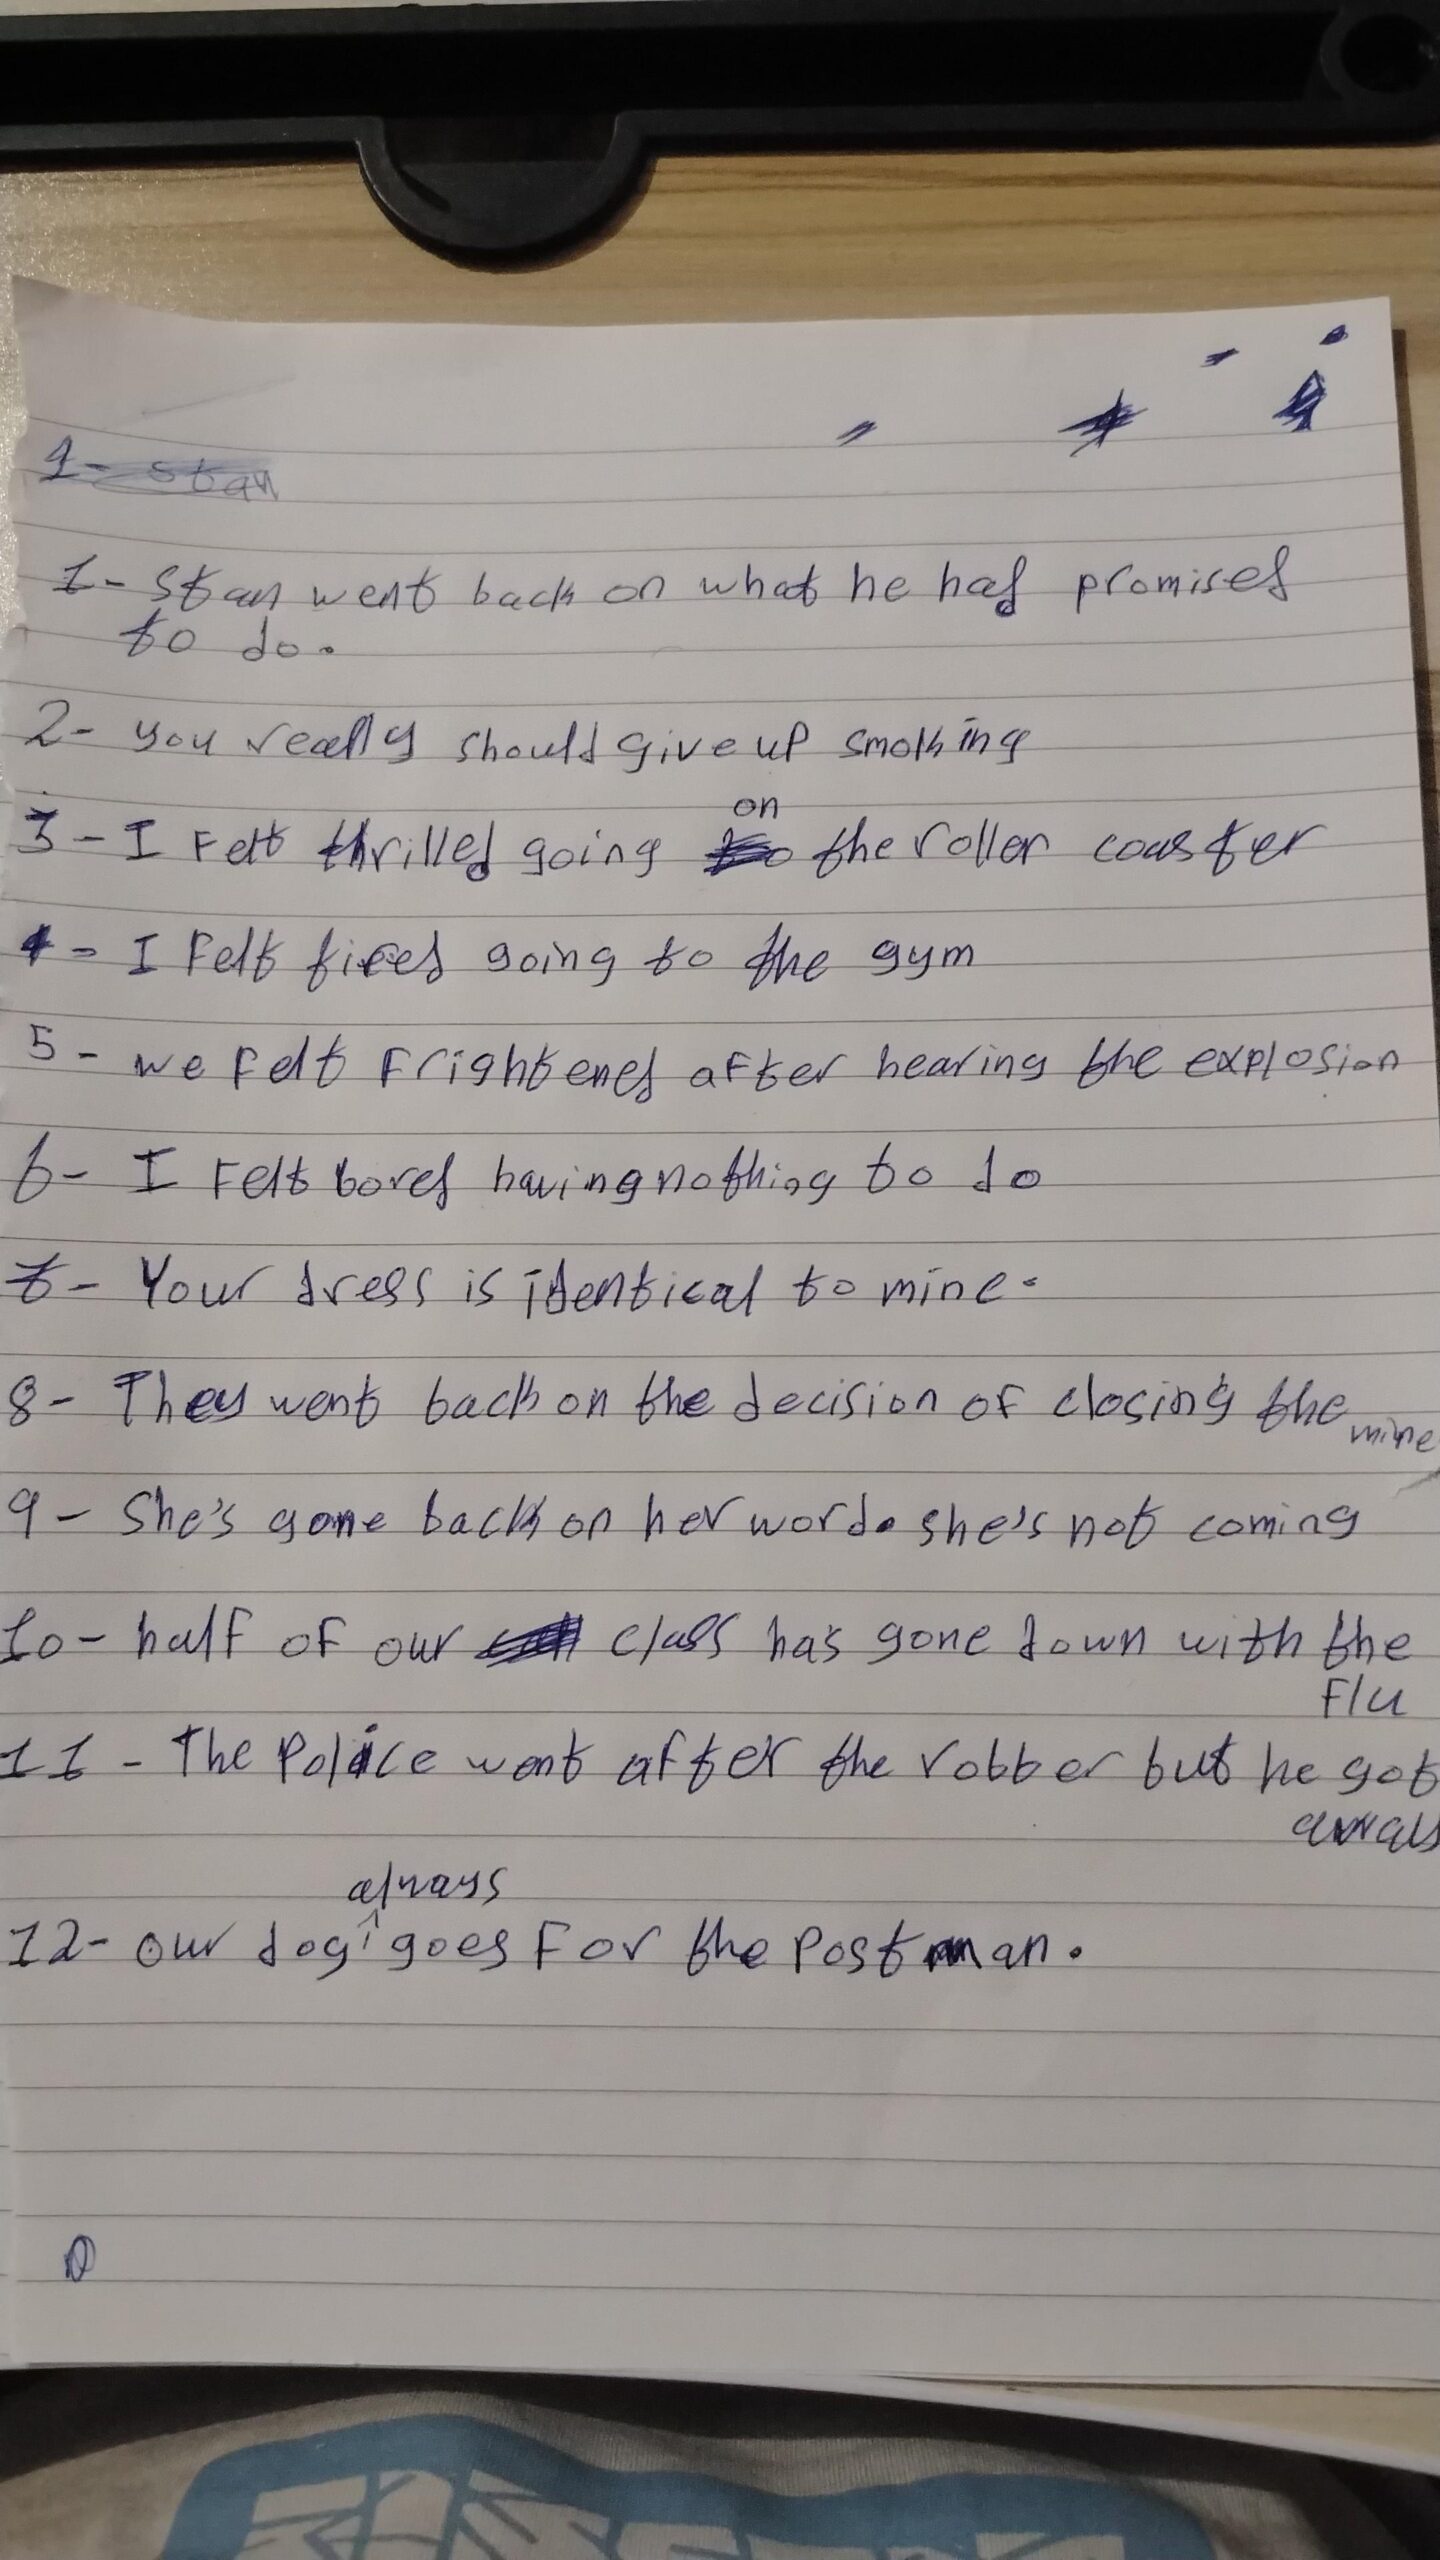 1- Stan
1- Stan went back on what he had promised
to do.
2- you really should give up smoking
3- I Felt thrilled going on the roller coaster
4- I Felt tired going to the gym
5- we Felt Frightened after hearing the explosion
6- I Felt bored having nothing to do
7- Your dress is identical to mine.
8- They went back on the decision of closing the
mine
9- She's gone back on her word. she's not coming
10- half of our class has gone down with the
Flu
11- The Police went after the robber but he got
away
always
12- our dog goes For the Postman.